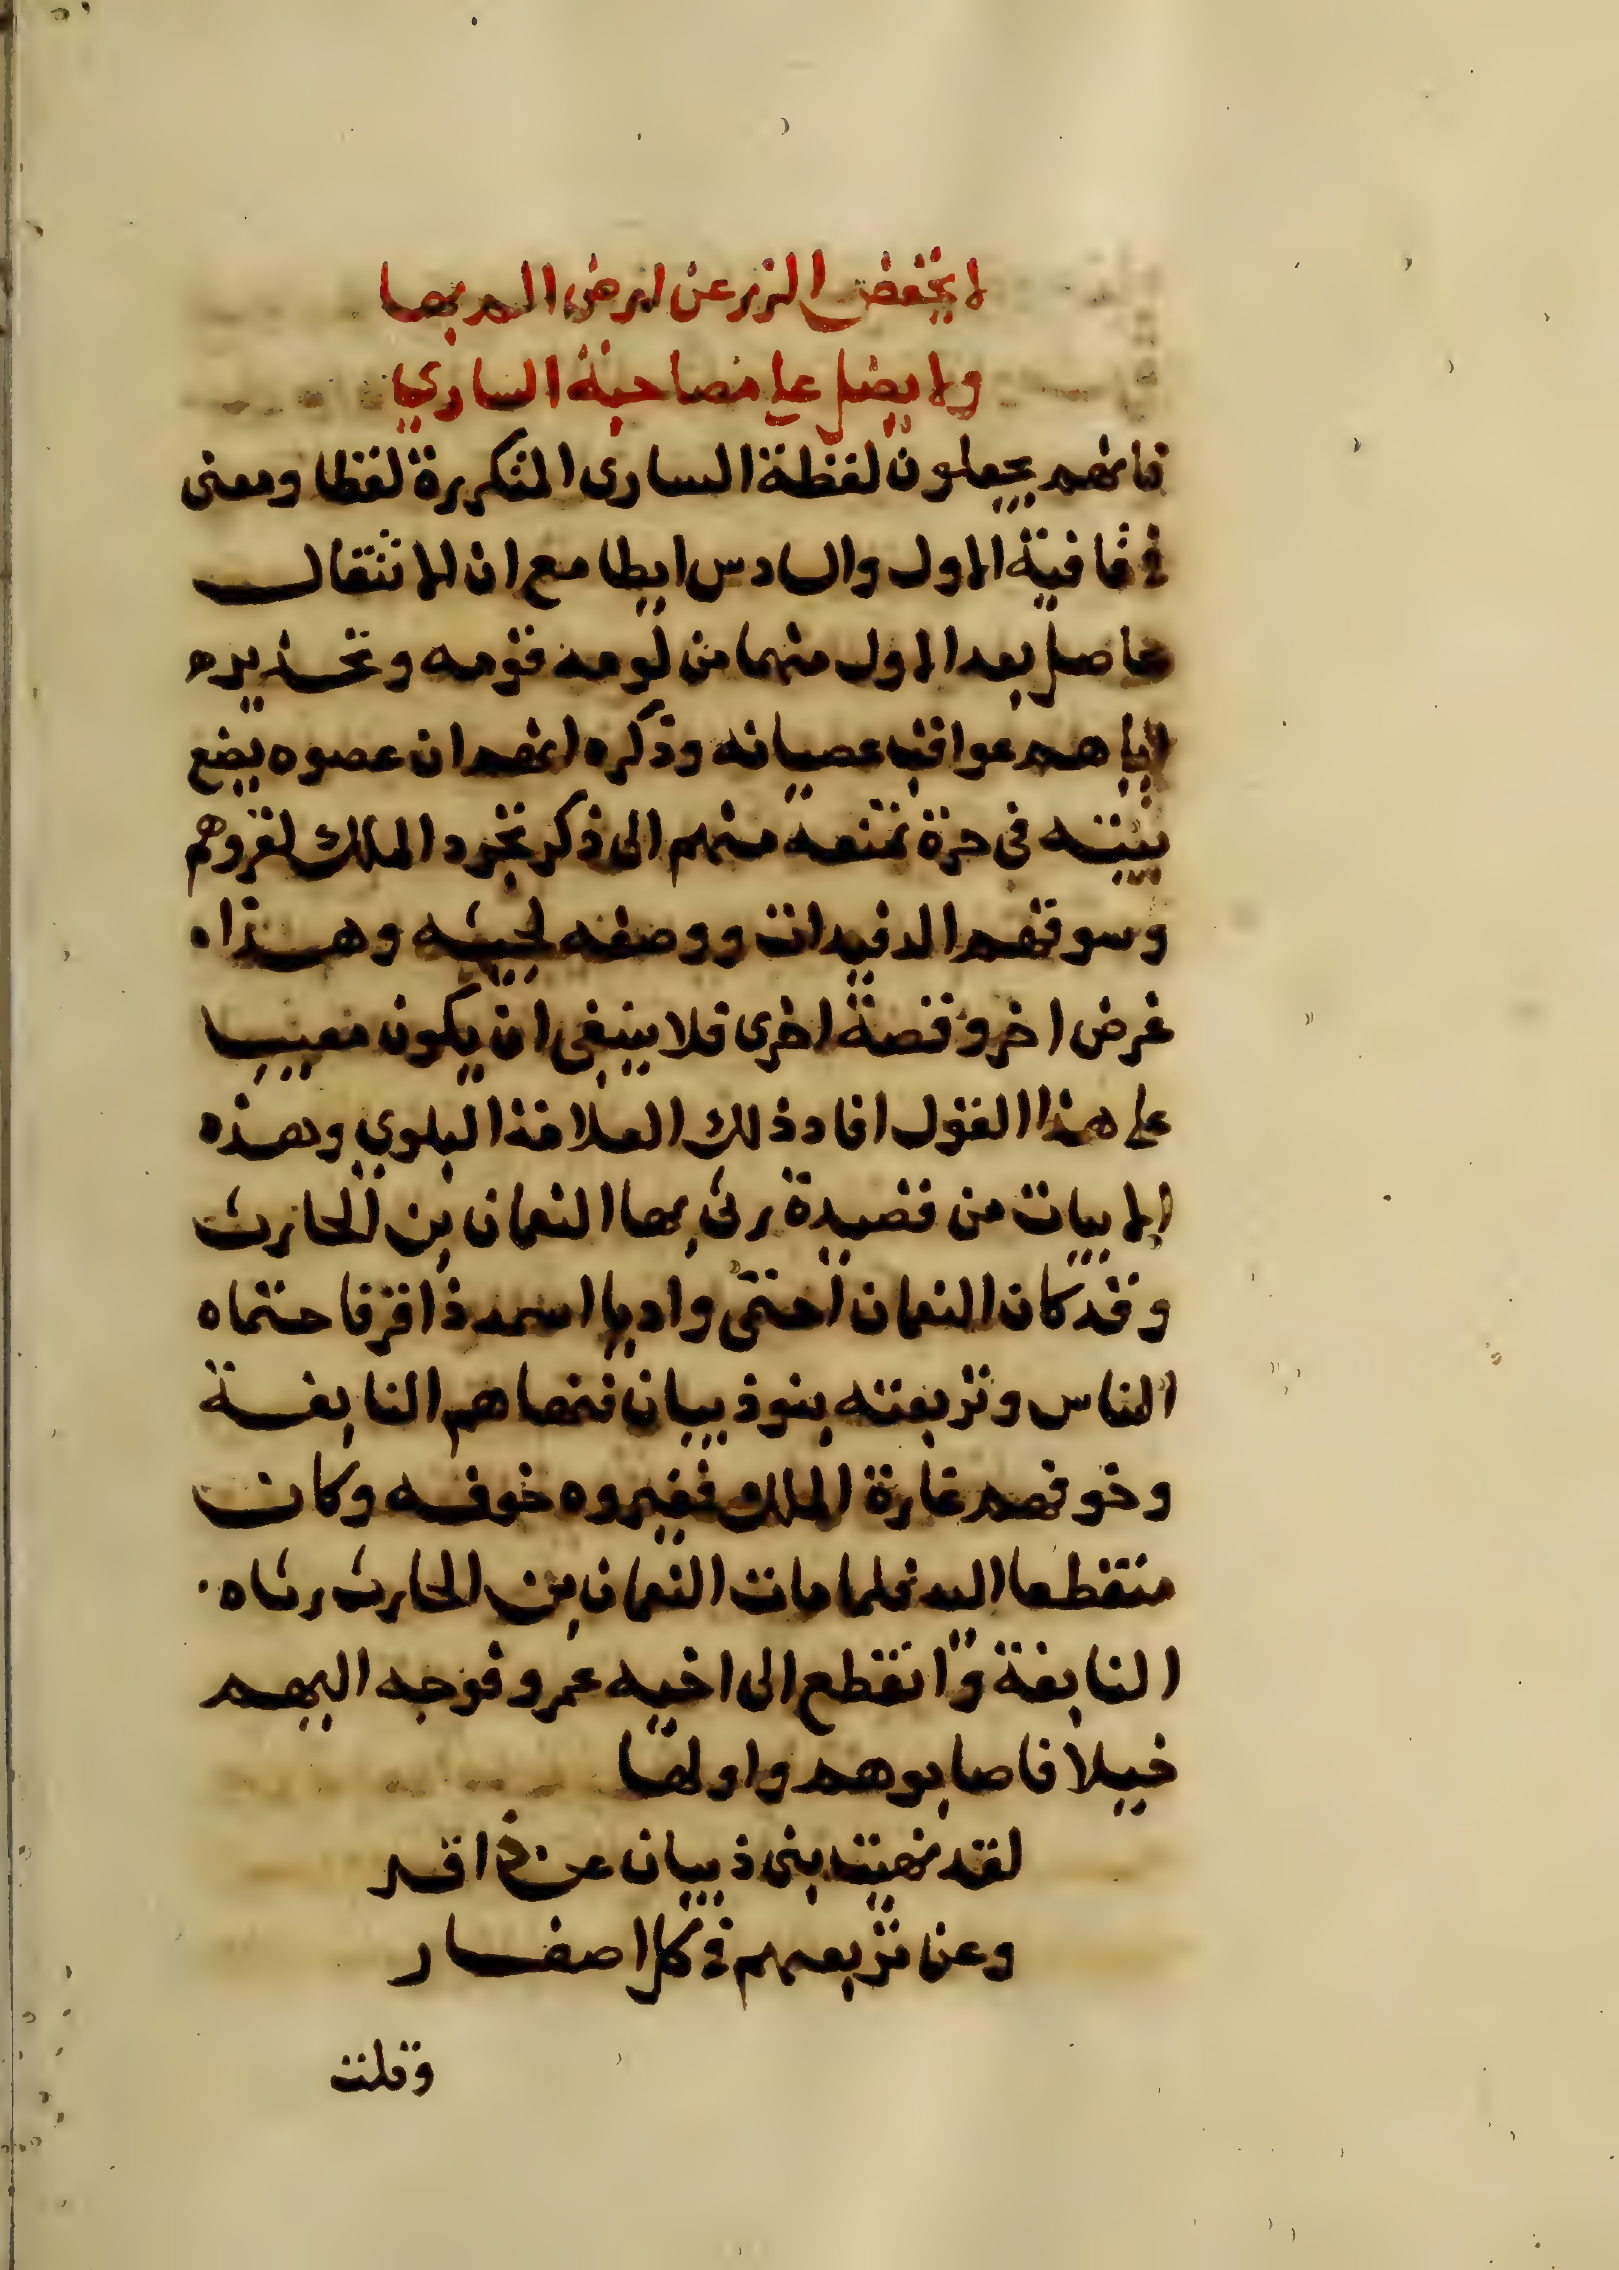 لا يخفض الرز عن ارض الم بها
ولا يضل على مصاحبة الساري
فانهم يجعلون لفظة السارى المتكررة لفظا ومعنى
فى قافية الاول والسادس ايطا مع ان الانتقال
حاصل بعد الاول منهما من لومه قومه وتحذيره
اياهم عواقب عصيانه وذكره انهم ان عصوه يضع
بيته فى حرة تمنعه منهم الى ذكر تجرد الملك لغزوهم
وسوقهم الرفيدات ووصفه لجيشه وهذا
غرض اخر وقصة اخرى فلا ينبغى ان يكون معيبا
على هذا القول افاد ذلك العلامة البلوي وهذه
الابيات من قصيدة رثى بها النعمان بن الحارث
وقد كان النعمان احتمى واديا اسمه ذا اقر فاحتماه
الناس وتربعته بنو ذبيان فنهاهم النابغة
وخوفهم غارة الملك فعيروه خوفه وكان
منقطعا اليه فلما مات النعمان بن الحارث رثاه
النابغة وانقطع الى اخيه عمرو فوجه اليهم
خيلا فاصابوهم واولها
لقد نهيت بنى ذبيان عن اقر
وعن تربعهم فى كل اصفار
وقلت